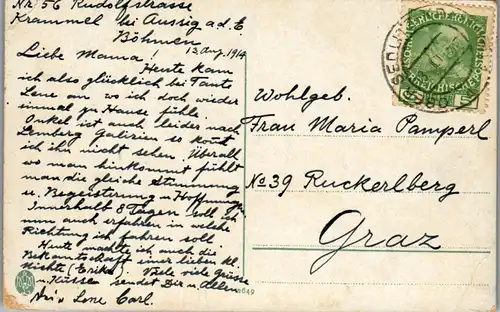 Nr 56 Rudolfstrasse
Krammel bei Aussig a.d.E
Böhmen
13 Aug. 1914
Liebe Mama
Heute kam
ich also glücklich bei Tante
Lene an wo ich doch wieder
einmal zu Hause fühle.
Onkel ist auch leider nach
Lemberg Galizien so kon̄t
ich ihn nicht sehen. Überall
wo man hinkommt fühlt
man die gleiche Stimmung
u. Begeisterung u. Hoffnung.
Innerhalb 8 Tagen soll
auch erfahren in welche
Richtung ich fahren soll.
Heute machte ich auch die
Bekantschaft einer lieben kl.
Nichte (Erika). Viele viele Grüsse
u. Küssen sendet Dir u. Allen
Carl.
Wohlgeb.
Frau Maria Pamperl
No 39 Ruckerlberg
Graz